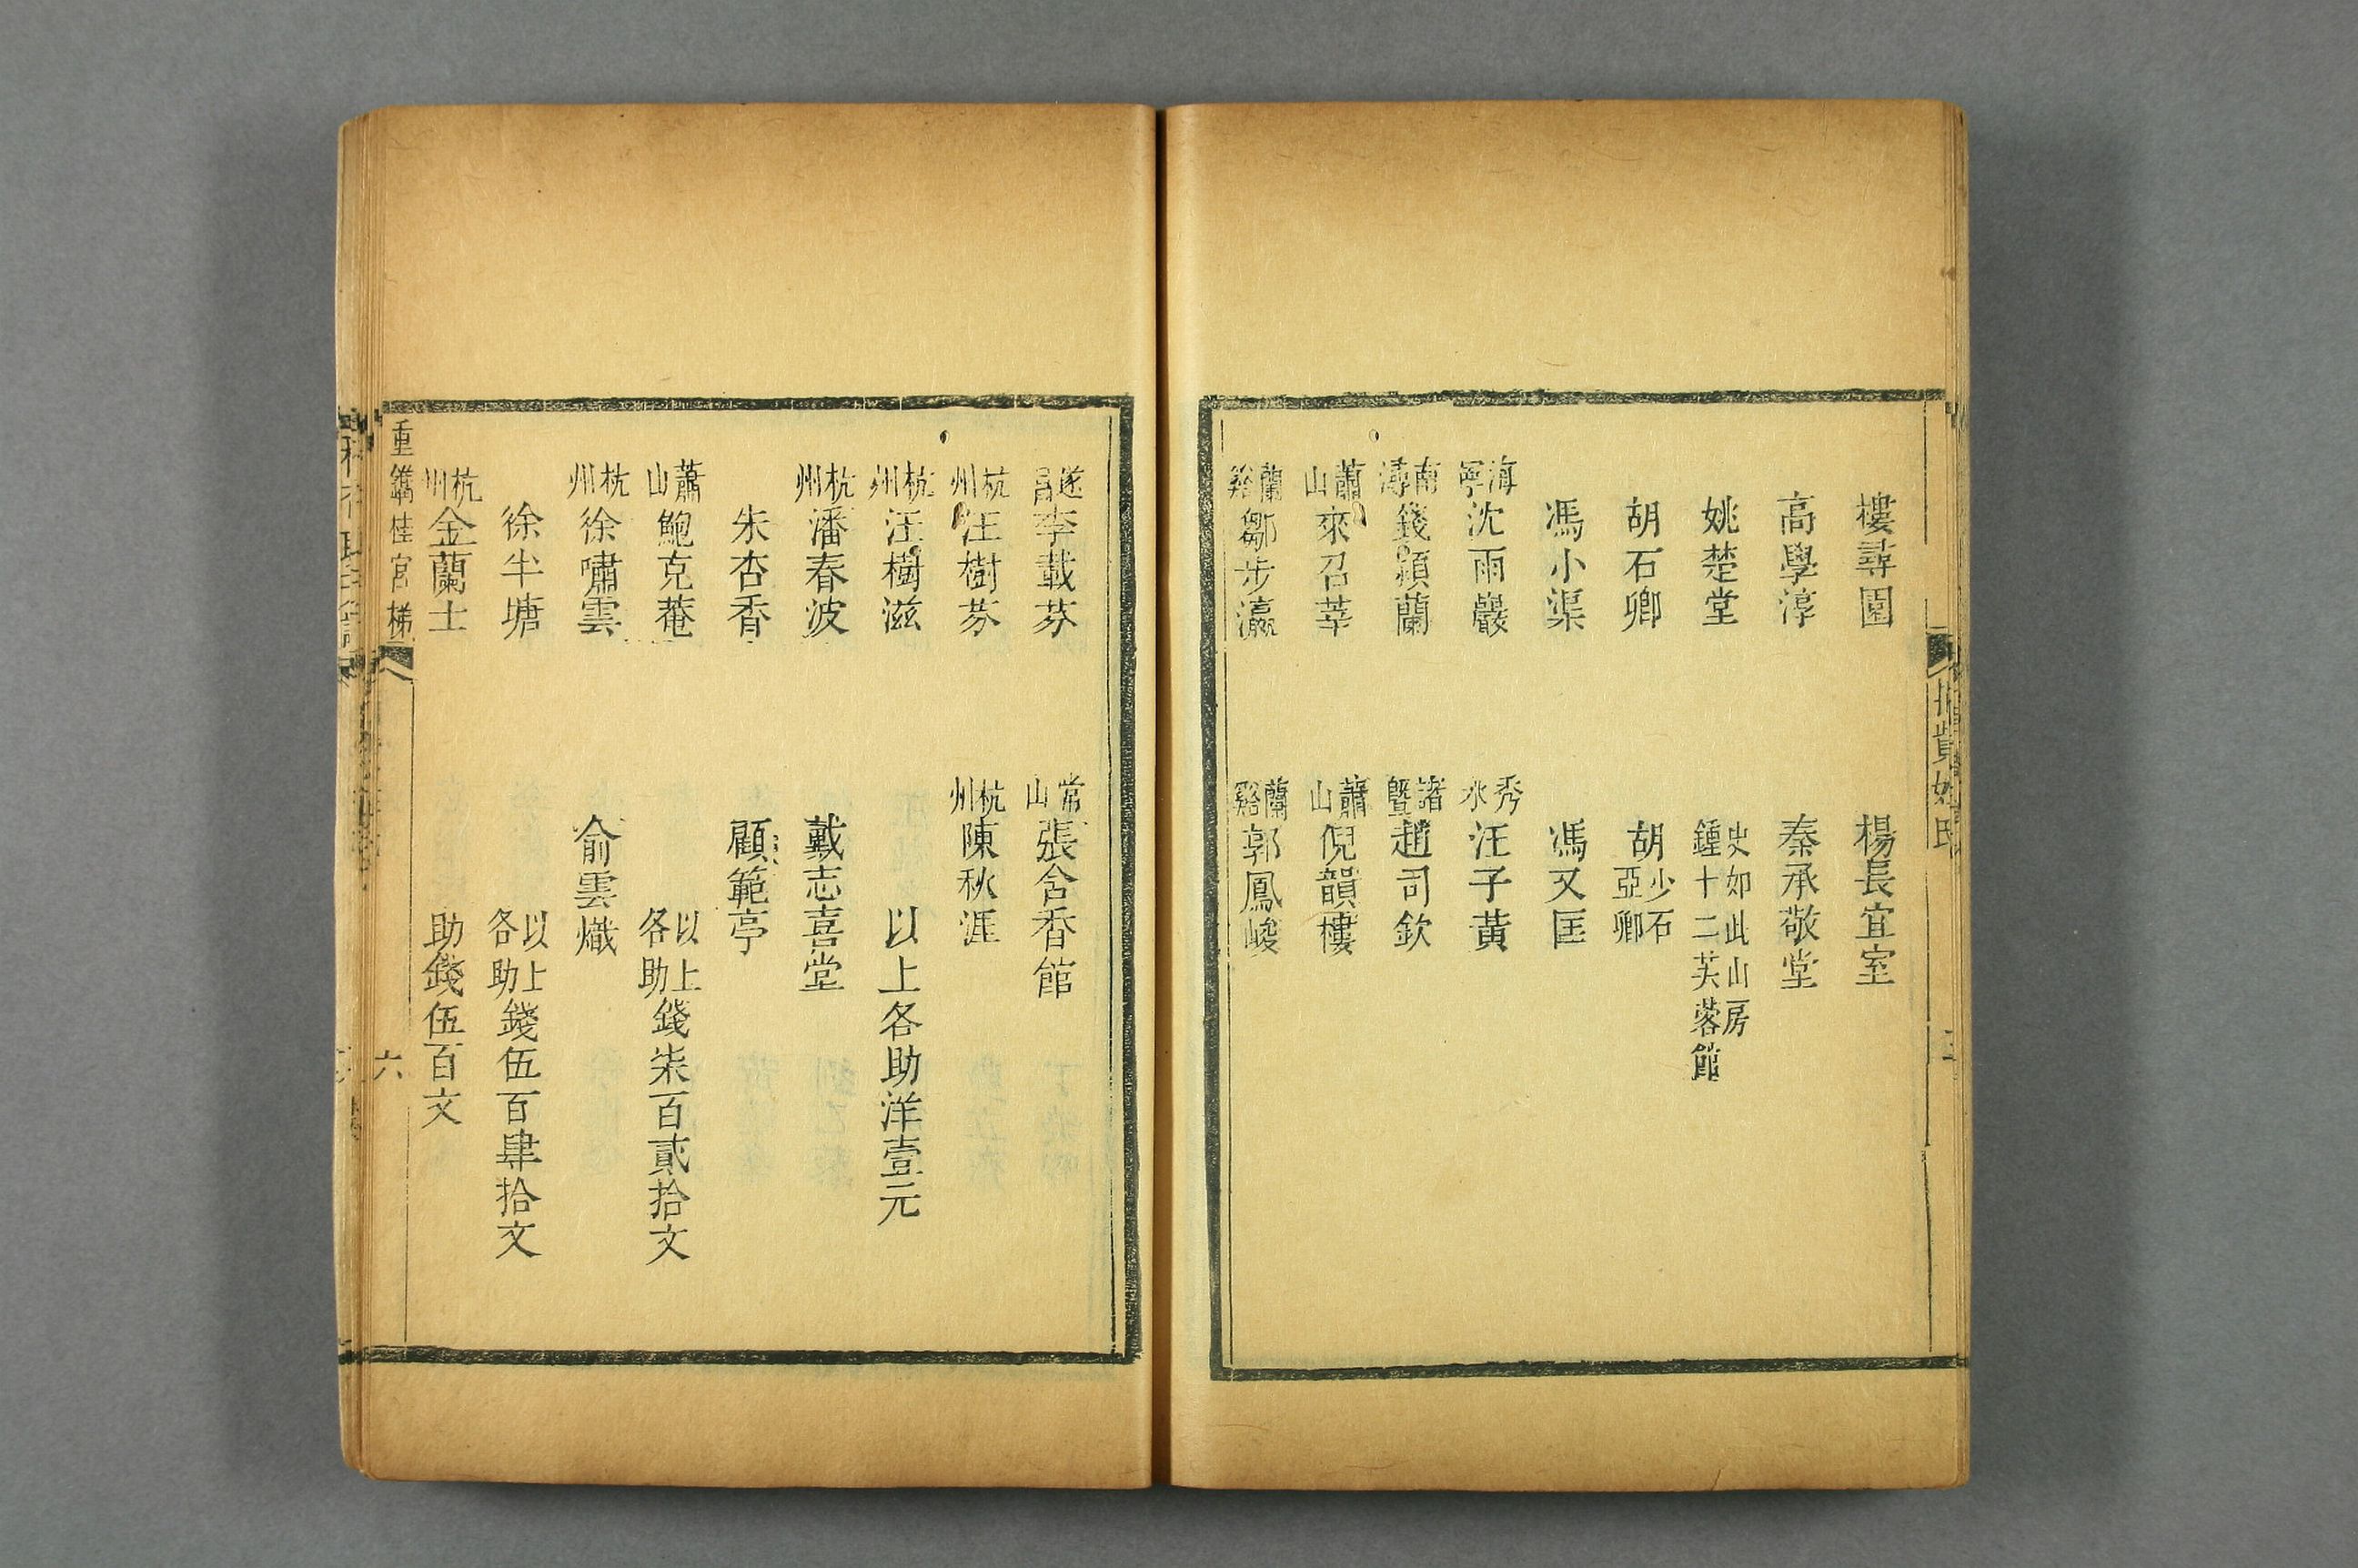 樓尋園　楊長宜室
高學淳　秦承敬堂
姚楚堂　史如此山房
鍾十二芙蓉館
胡石卿　胡少石亞卿
馮小渠　馮又匡
海寧沈雨巖　秀水汪子黃
南潯錢蘋蘭　諸暨趙司欽
蕭山來召莘　蕭山倪韻樓
蘭谿鄒步瀛　蘭谿郭鳳峻
遂昌李載芬　常山張含香館
杭州汪樹芬　杭州陳秋涯
杭州汪樹滋　以上各助洋壹元
杭州潘春波　戴志喜堂
朱杏香　顧範亭
蕭山鮑克菴　以上各助錢柒百貳拾文
杭州徐嘯雲　俞雲熾
徐半塘　以上各助錢伍百肆拾文
杭州金蘭士　助錢伍百文
重鐫桂宮梯　六